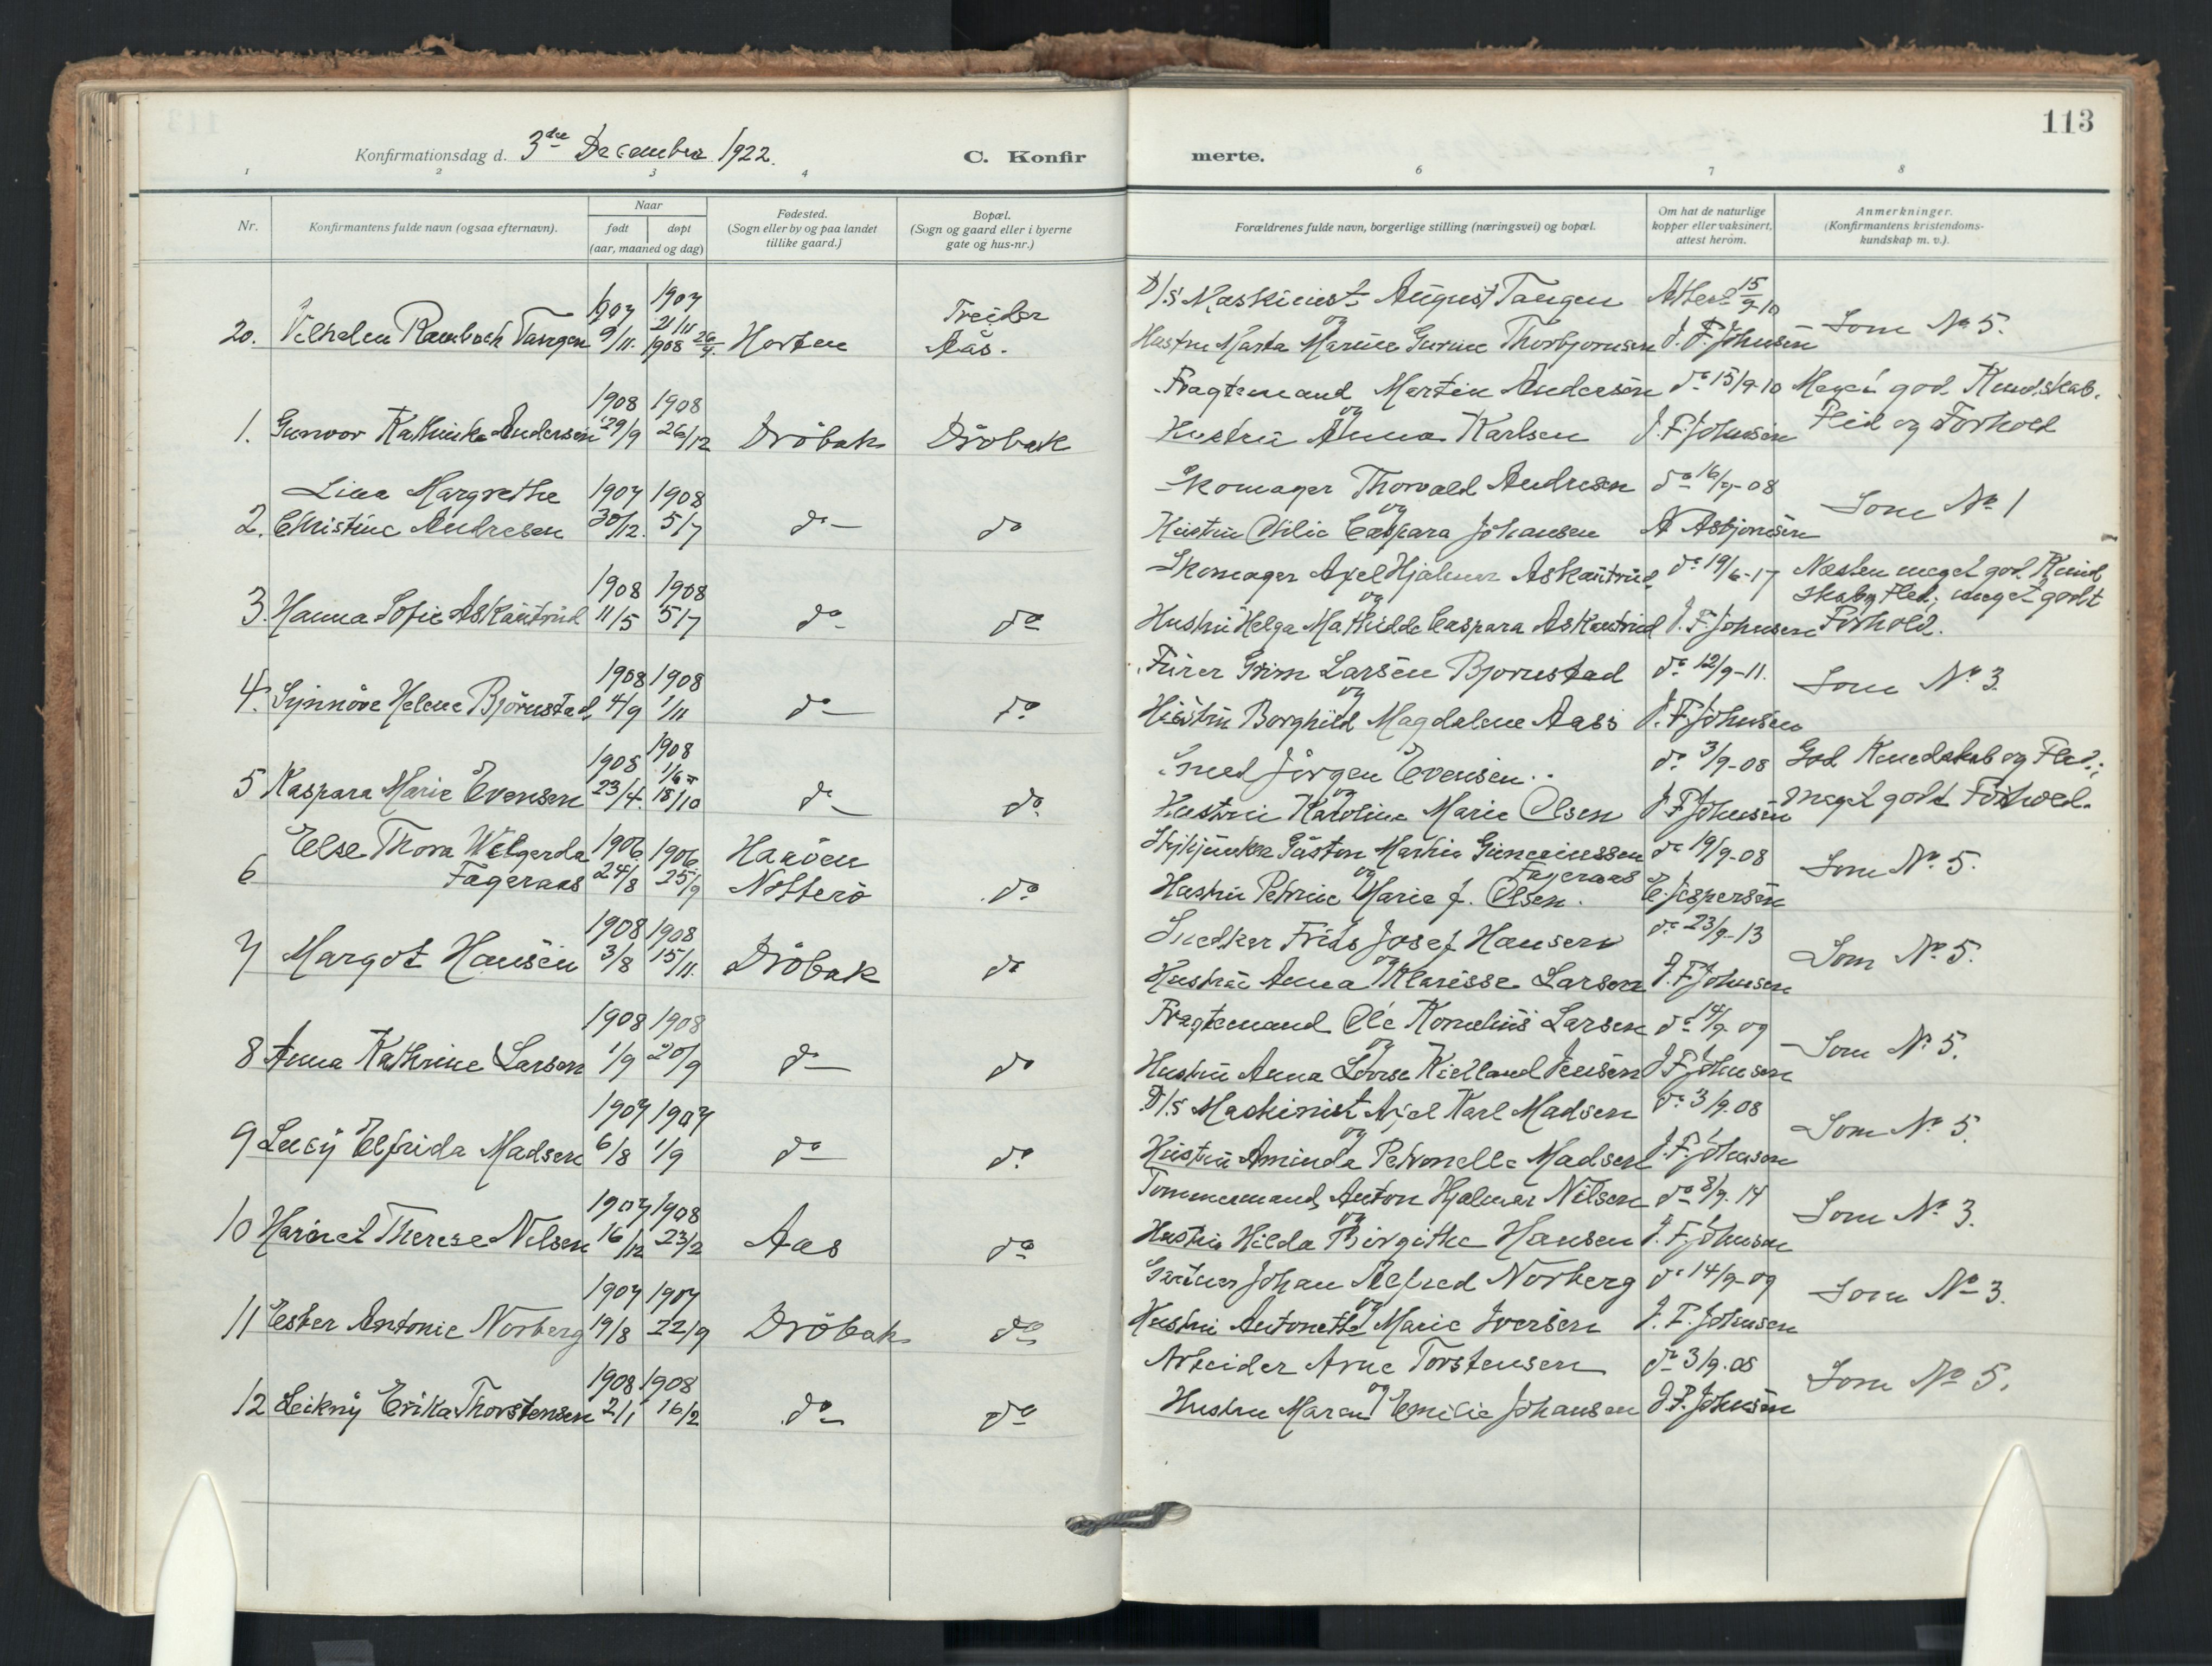 113
Konfirmationsdag d. 3die December 1922. C. Konfirmerte.
1 2 3 4 6 7 8
Nr. Konfirmantens fulde navn (ogsaa efternavn). Naar født døpt (aar, maaned og dag) Fødested. (Sogn eller by og paa landet tillike gaard.) Bopæl. (Sogn og gaard eller i byerne gate og hus-nr.) Forældrenes fulde navn, borgerlige stilling (næringsvei) og bopæl. Om hat de naturlige kopper eller vaksinert, attest herom. Anmerkninger. (Konfirmantens kristendomskundskap m. v.).
1907 1907 21/11 Treider D/s Maskinist August Tangen Attest 15/9-10
20. Vilhelm Rambech Tangen 9/11. 1908 26/4. Horten Aas. og Hustru Marta Marine Gurine Thorbjornsen J. F. Johnsen Som No 5.
1908 1908 Fragtemand Martin Andersen do 15/9-10 Meget god Kundskab.
1. Gunvor Kathinka Andersen 29/9 26/12 Dröbak Dröbak og Hustru Anna Karlsen J. F. Johnsen Flid og Forhold
Lina Margrethe 1907 1908 Skomager Thorvald Andresen do 16/9-08
2. Christine Andresen 30/12. 5/7 do do og Hustru Otilie Caspara Johansen A Asbjornsen Som No 1
1908 1908 Skomager Axel Hjalmar Askautrud do 19/6-17 Næsten meget god Kundskab og Flid; meget godt
3. Hanna Sofie Askautrud 11/5 5/7 do do og Hustru Helga Mathilde Caspara Askautrud J. F. Johnsen Forhold.
1908 1908 Furer Grim Larsen Bjornstad do 12/9-11.
4. Synnöve Helene Björnstad 4/9 1/11 do do og Hustru Borghild Magdalene Aass J. F. Johnsen Som No 3.
1908 1908 1/6 Smed Jörgen Evensen do 3/9-08 God Kundskab og Flid;
5 Kaspara Marie Evensen 23/4. 18/10 do do og Hustru Karoline Marie Olsen J F Johnsen meget godt Forhold.
Else Thora Welgerda 1906 1906 Haaöen Gaston Martin Guneriussen Fageraas do 19/9-08
6 Fageraas 24/8 25/9 Nötterö do og Hustru Petrine Marie J. Olsen. E. Jespersen Som No 5.
1908 1908 Snedker Frits Josef Hansen do 23/9-13
7 Margot Hansen 3/8 15/11. Dröbak do og Hustru Anna Klarisse Larsen J. F. Johnsen Som No 5.
1908 1908 Fragtemand Ole Kornelius Larsen do 14/9-09
8 Anna Kathrine Larsen 1/9 20/9 do do og Hustru Anna Lovise Kielland Jensen J F Johnsen Som No 5.
1907 1907 D/s Maskinist Axel Karl Madsen do 3/9.08
9 Lucy Elfrida Madsen 6/8 1/9 do do og Hustru Aminda Petronelle Madsen J. F. Johnsen Som No 5.
1907 1908 Tommermand Anton Hjalmar Nilsen do 8/9.14
10 Harriet Therese Nilsen 16/12 23/2 Aas do og Hustru Hilda Birgithe Hansen J. F. Johnsen Som No 3.
1907 1907 Gartner Johan Alfred Norberg do 14/9-09
11 Ester Antonie Norberg 19/8 22/9 Dröbak do og Hustru Antonette Marie Iversen J. F. Johnsen Som No 3.
1908 1908 Arbeider Arne Torstensen do 3/9.08
12 Leikny Erika Thorstensen 2/1 16/2 do do og Hustru Maren Emilie Johansen J. F. Johnsen Som No 5.